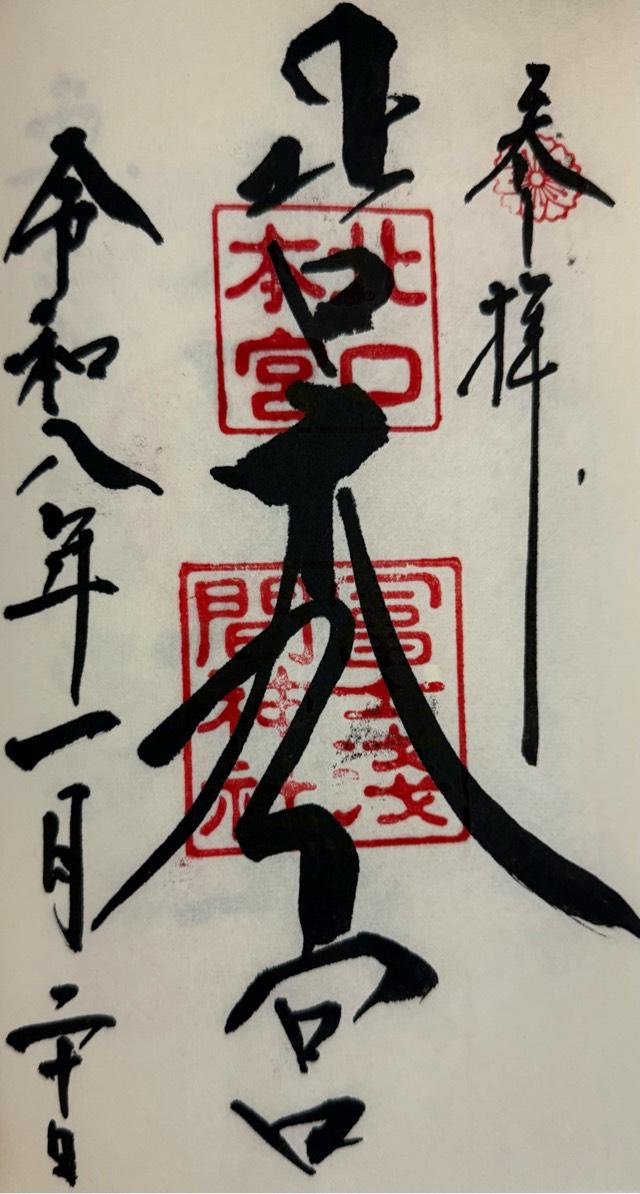 奉拝
北口本宮
北口
本宮
冨士淺
間神社
令和八年一月二十日